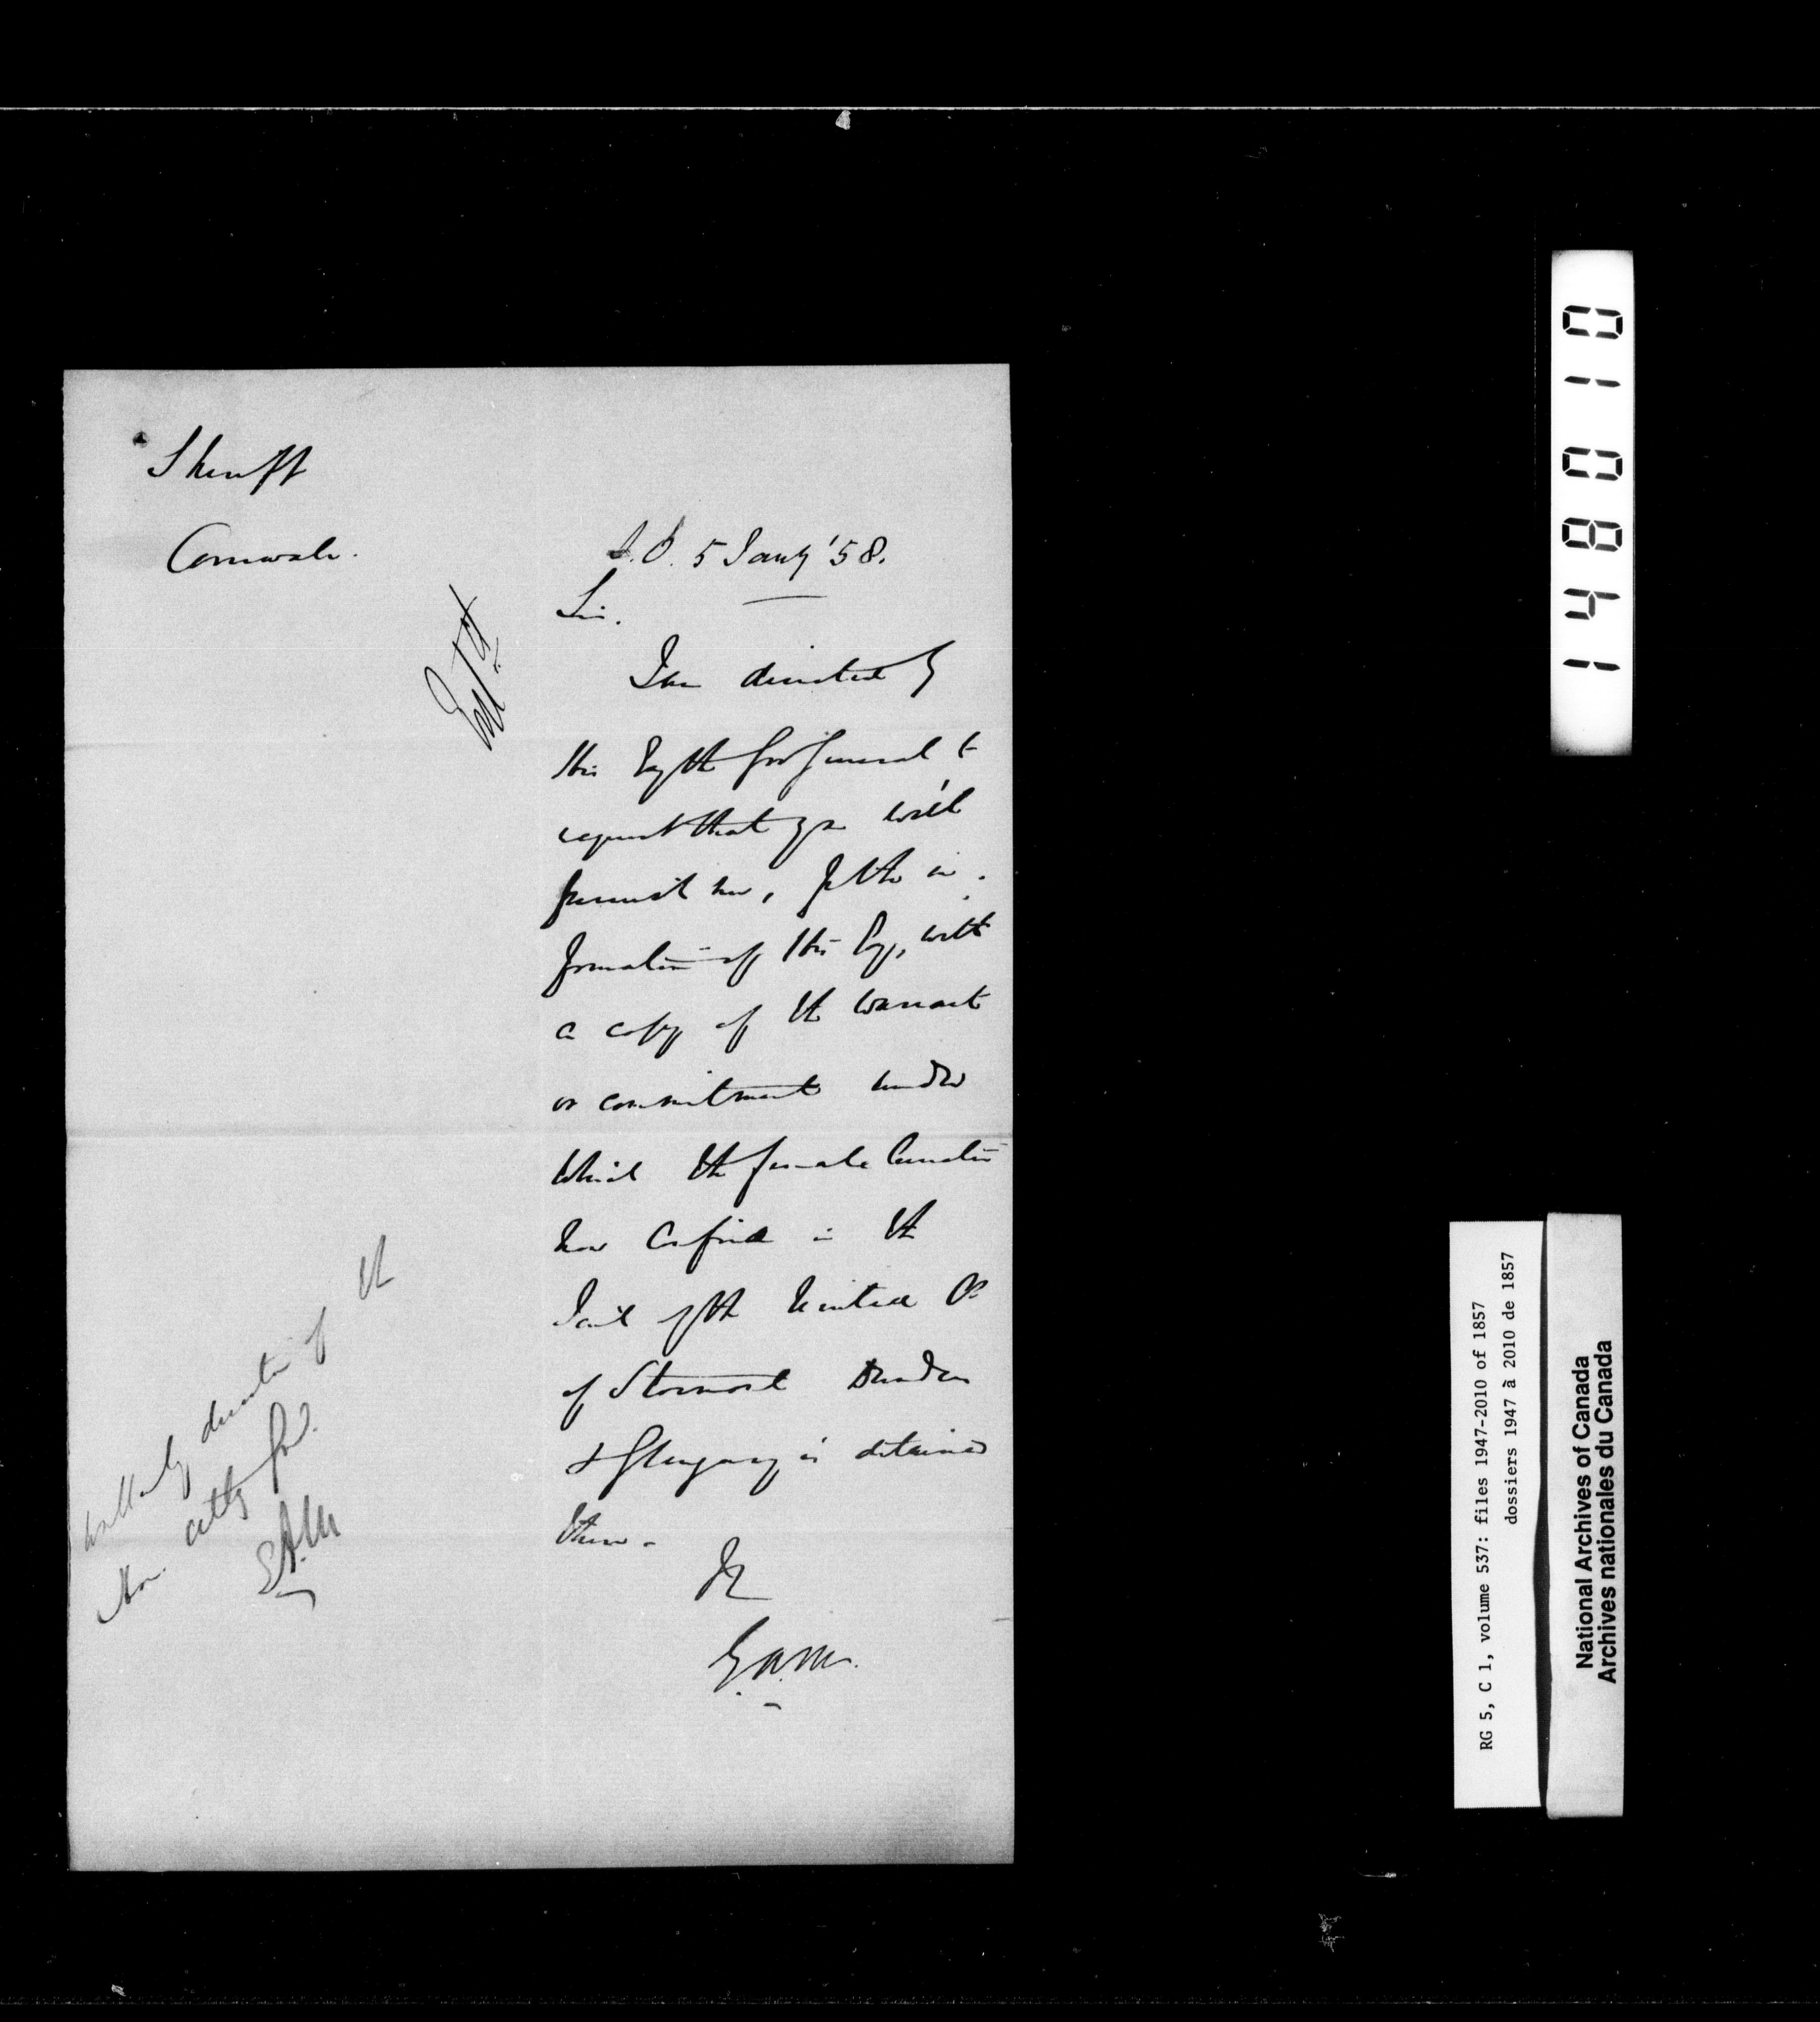 Sheriff
Cornwall.
S.O. 5 Jany '58.
Sir.
Entd
I am directed by
His Exy the Gov General to
request that you will
furnish me, for the in-
formation of His Exy, with
a copy of the warrant
or commitment under
which the female lunatic
now confined in the
Jail of the United Cs
of Stormont Dundas
& Glengary is detained
there.
E.A.M.
direction of the
Hon. Atty Gen.
E.A.M
010841
RG 5, C 1, volume 537: files 1947-2010 of 1857
dossiers 1947 à 2010 de 1857
National Archives of Canada
Archives nationales du Canada